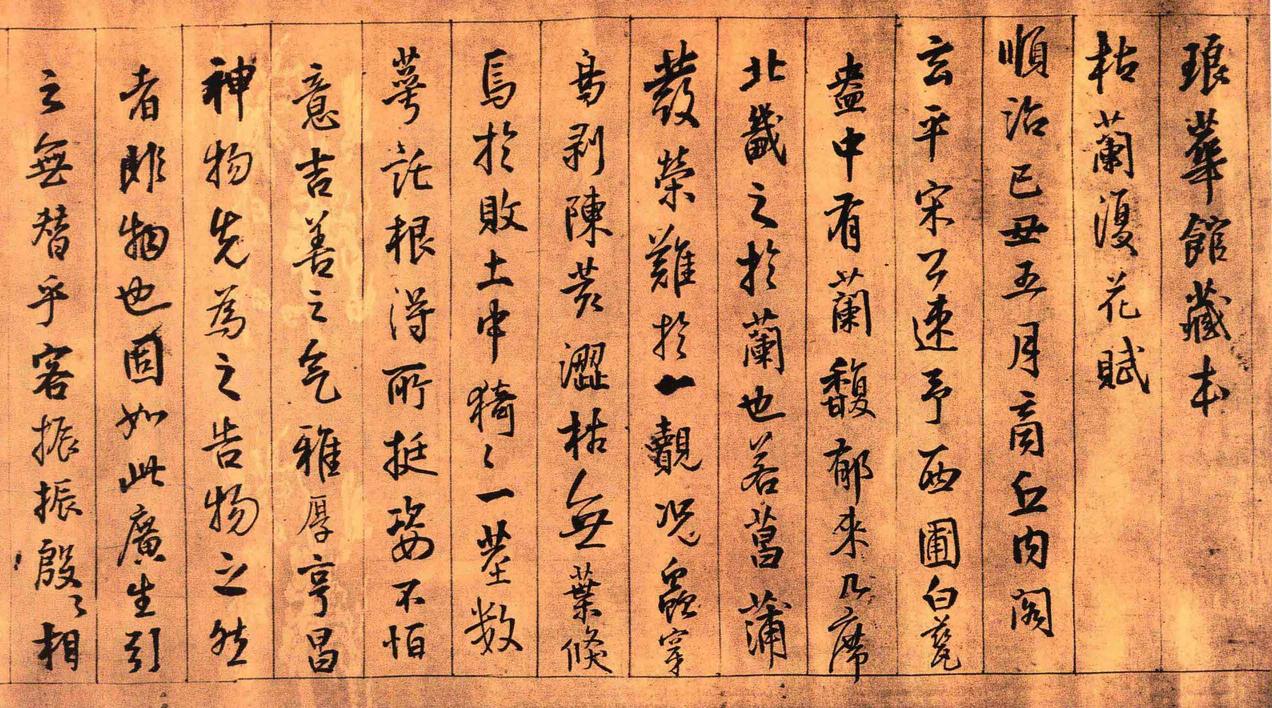 琅華館藏本
枯蘭復花賦
順治己丑五月商丘内閣
玄平宋公速予西圃白甆
盎中有蘭馥郁來几席
北畿之於蘭也若菖蒲
發榮難於一覩况蟲穿
鳥剥陳荄澀枯無葉倐
焉於敗土中猗〻一茎数
萼託根得所挺姿不恒
意吉善之气雅厚亨昌
神物先為之告物之然
者非物也固如此廣生引
之無替乎客振振殷〻相